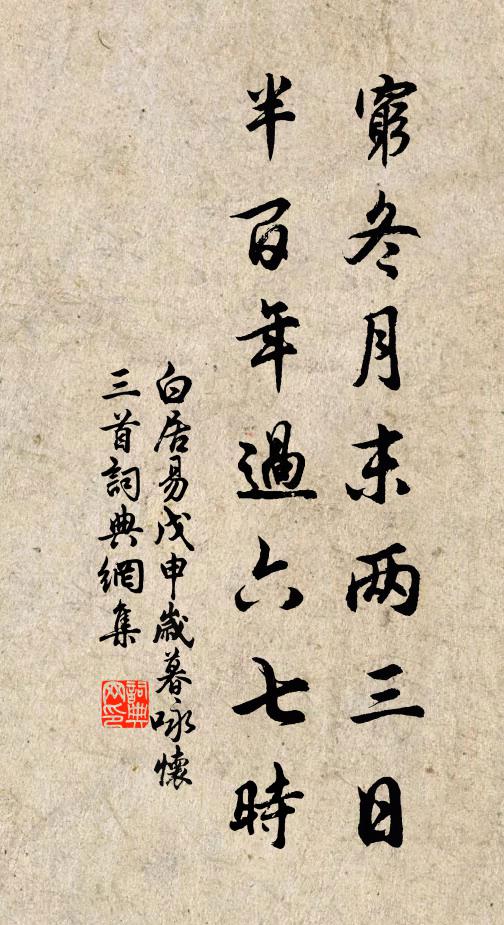 窮冬月末两三日
半百年過六七時
白居易戊申歲暮咏懷
三首詞典網集
詞典
网印